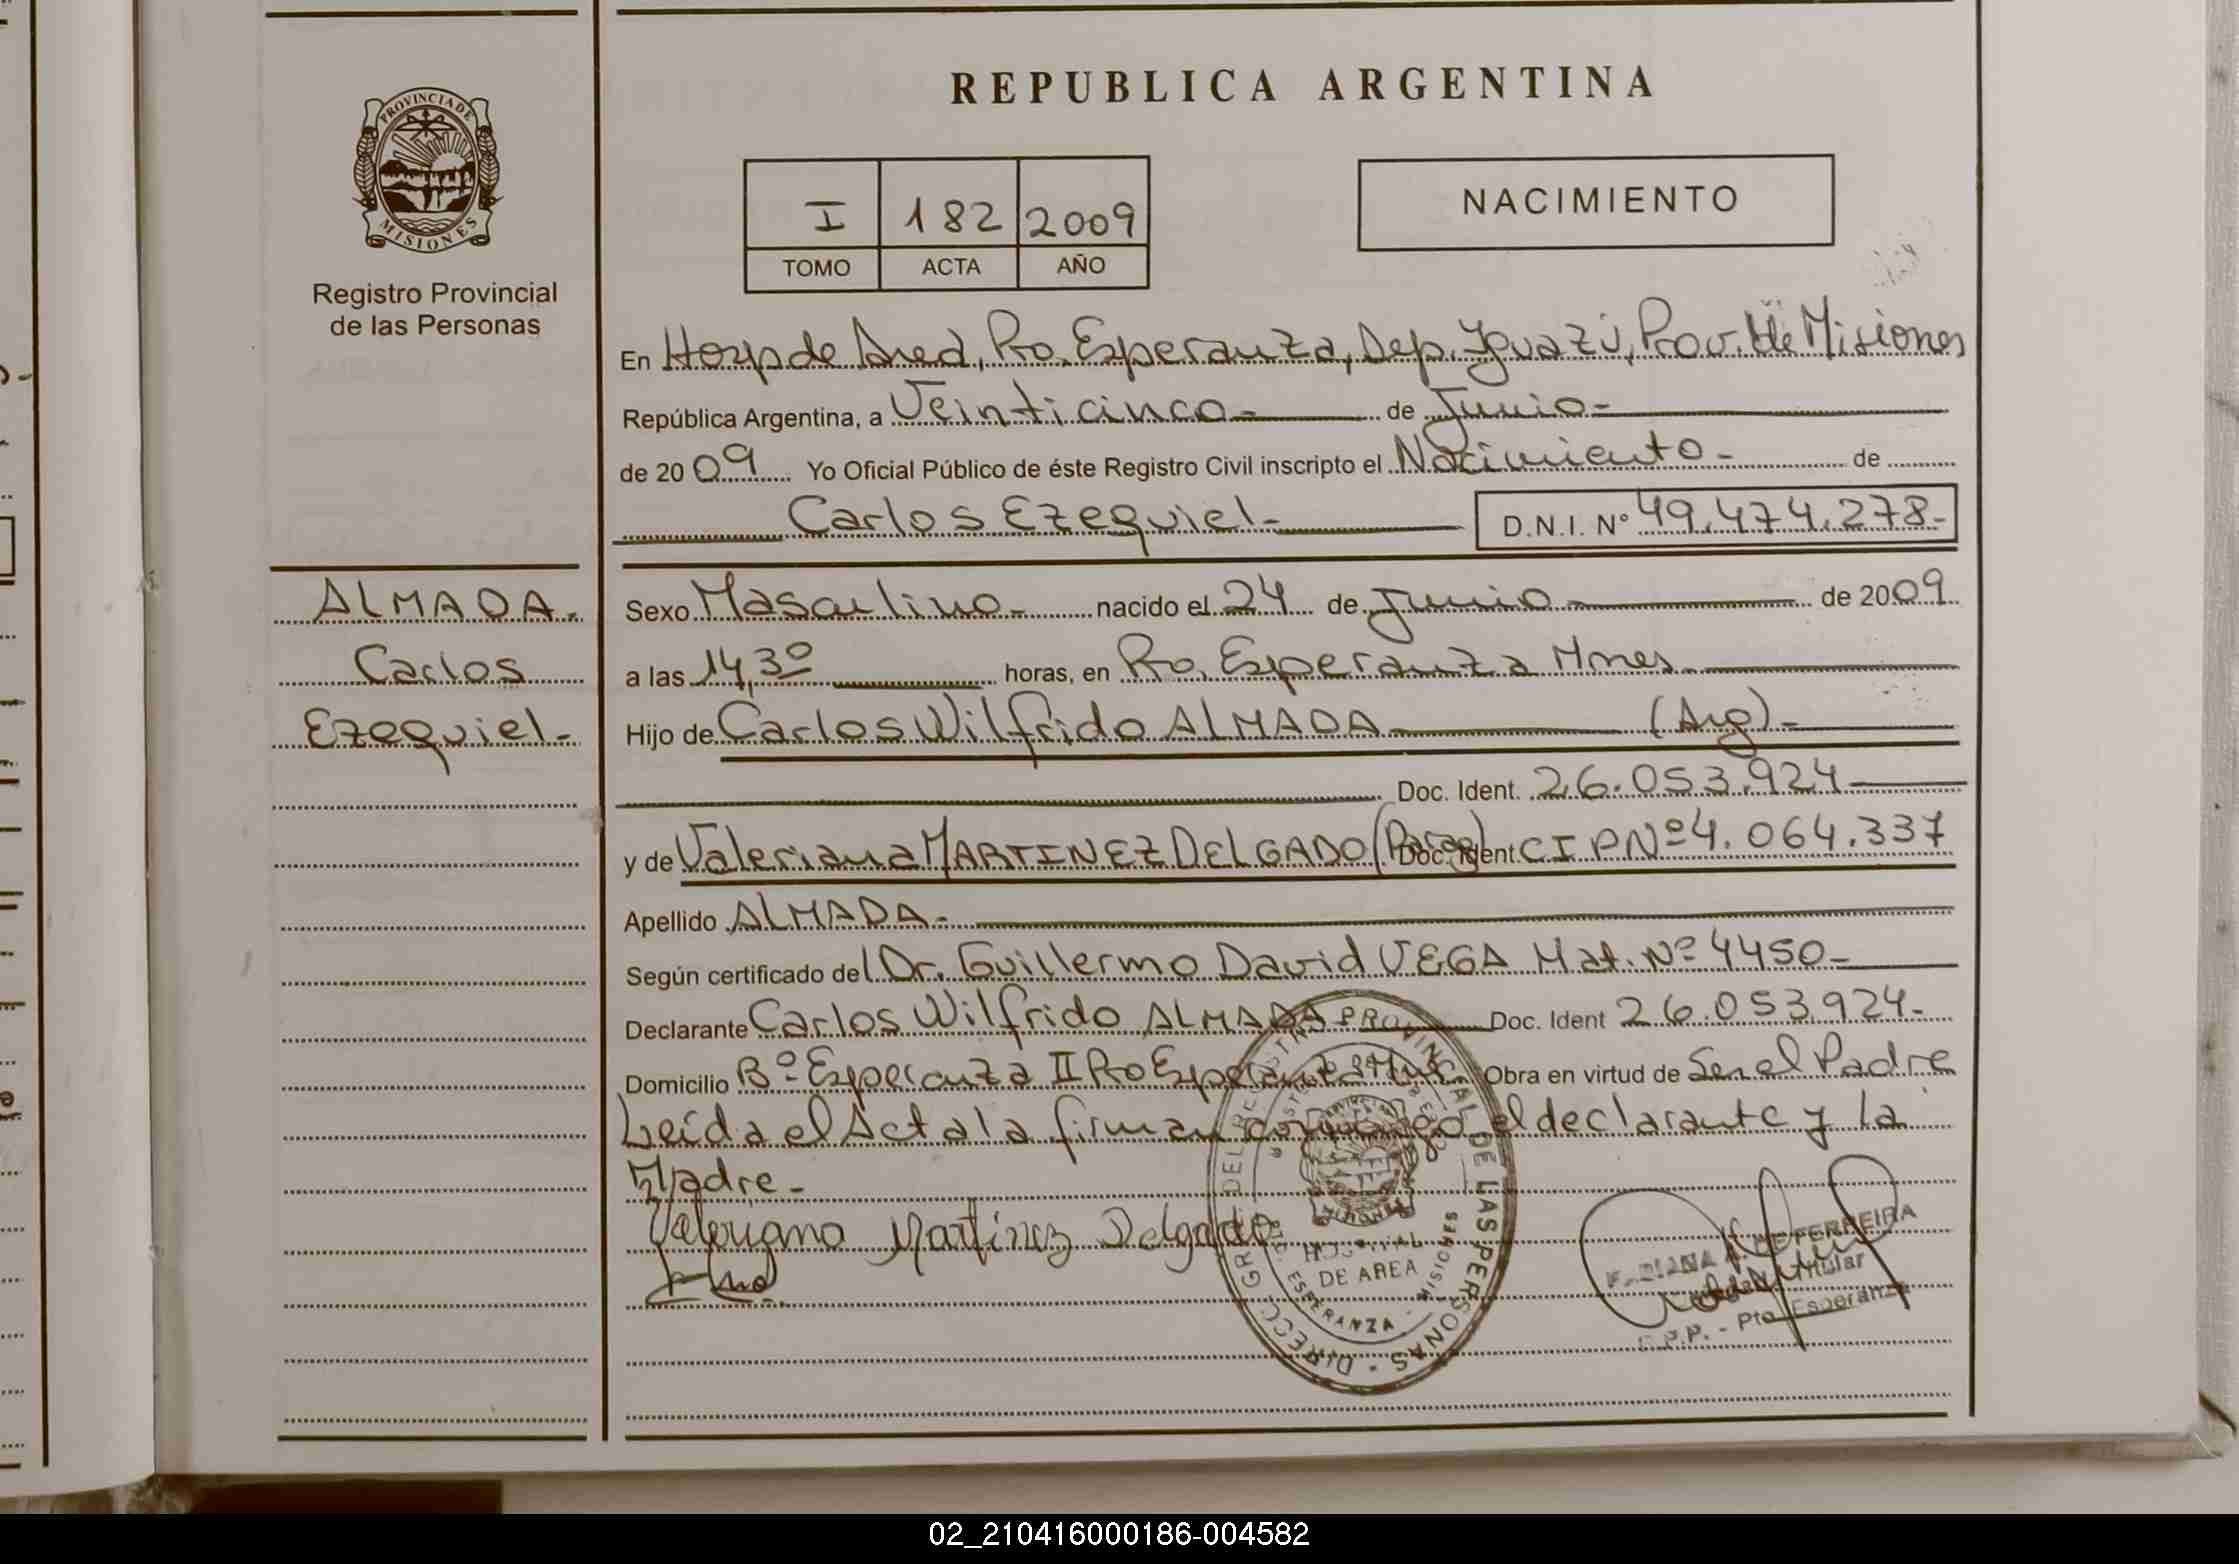 REPUBLICA ARGENTINA
PROVINCIA DE
MISIONES
Registro Provincial
de las Personas
I 182 2009
TOMO ACTA AÑO
NACIMIENTO
En Hosp de Area, Pto. Esperanza, Dep. Iguazú, Prov. de Misiones
República Argentina, a Veinticinco- de Junio-
de 2009 Yo Oficial Público de éste Registro Civil inscripto el Nacimiento- de
Carlos Ezequiel- D.N.I. Nº 49.474.278-
ALMADA.
Carlos
Ezequiel-
Sexo Masculino- nacido el 24 de Junio de 2009
a las 14,30 horas, en Pto. Esperanza Mnes.
Hijo de Carlos Wilfrido ALMADA (Arg)-
Doc. Ident. 26.053.924
y de Valeriana MARTINEZ DELGADO (Parag) Doc. Ident. CIPNº 4.064.337
Apellido ALMADA-
Según certificado del Dr. Guillermo David VEGA Mat. Nº 4450-
Declarante Carlos Wilfrido ALMADA Doc. Ident 26.053.924-
Domicilio Bº Esperanza II Pto Esperanza Mnes. Obra en virtud de Ser el Padre
Leída el Acta la firman conmigo el declarante y la
Madre-
Valeriana Martínez Delgado
DIRECC. GRAL. DEL REGISTRO PROVINCIAL DE LAS PERSONAS
HOSPITAL
DE AREA
ESPERANZA - MISIONES
FERREIRA
Titular
R.P.P. - Pto. Esperanza
02_210416000186-004582